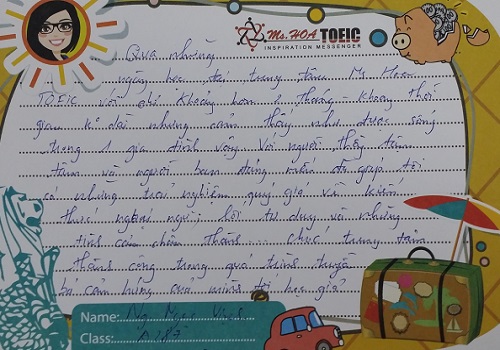 Ms. HOA TOEIC
INSPIRATION MESSENGER
Qua những
ngày học tại trung tâm Ms Hoa
TOEIC với chỉ khoảng hơn 2 tháng - khoảng thời
gian k dài nhưng cảm thấy như được sống
trong 1 gia đình vậy. Với người thầy
tâm và người bạn đã giúp tôi
có những trải nghiệm quý giá và kiến
thức ngoại ngữ, lối tư duy và những
tình cảm chân thành ... chúc trung tâm
thành công trong quá trình truyền
cảm hứng của mình tới học giả
Name: Ng Ngọc
Class: